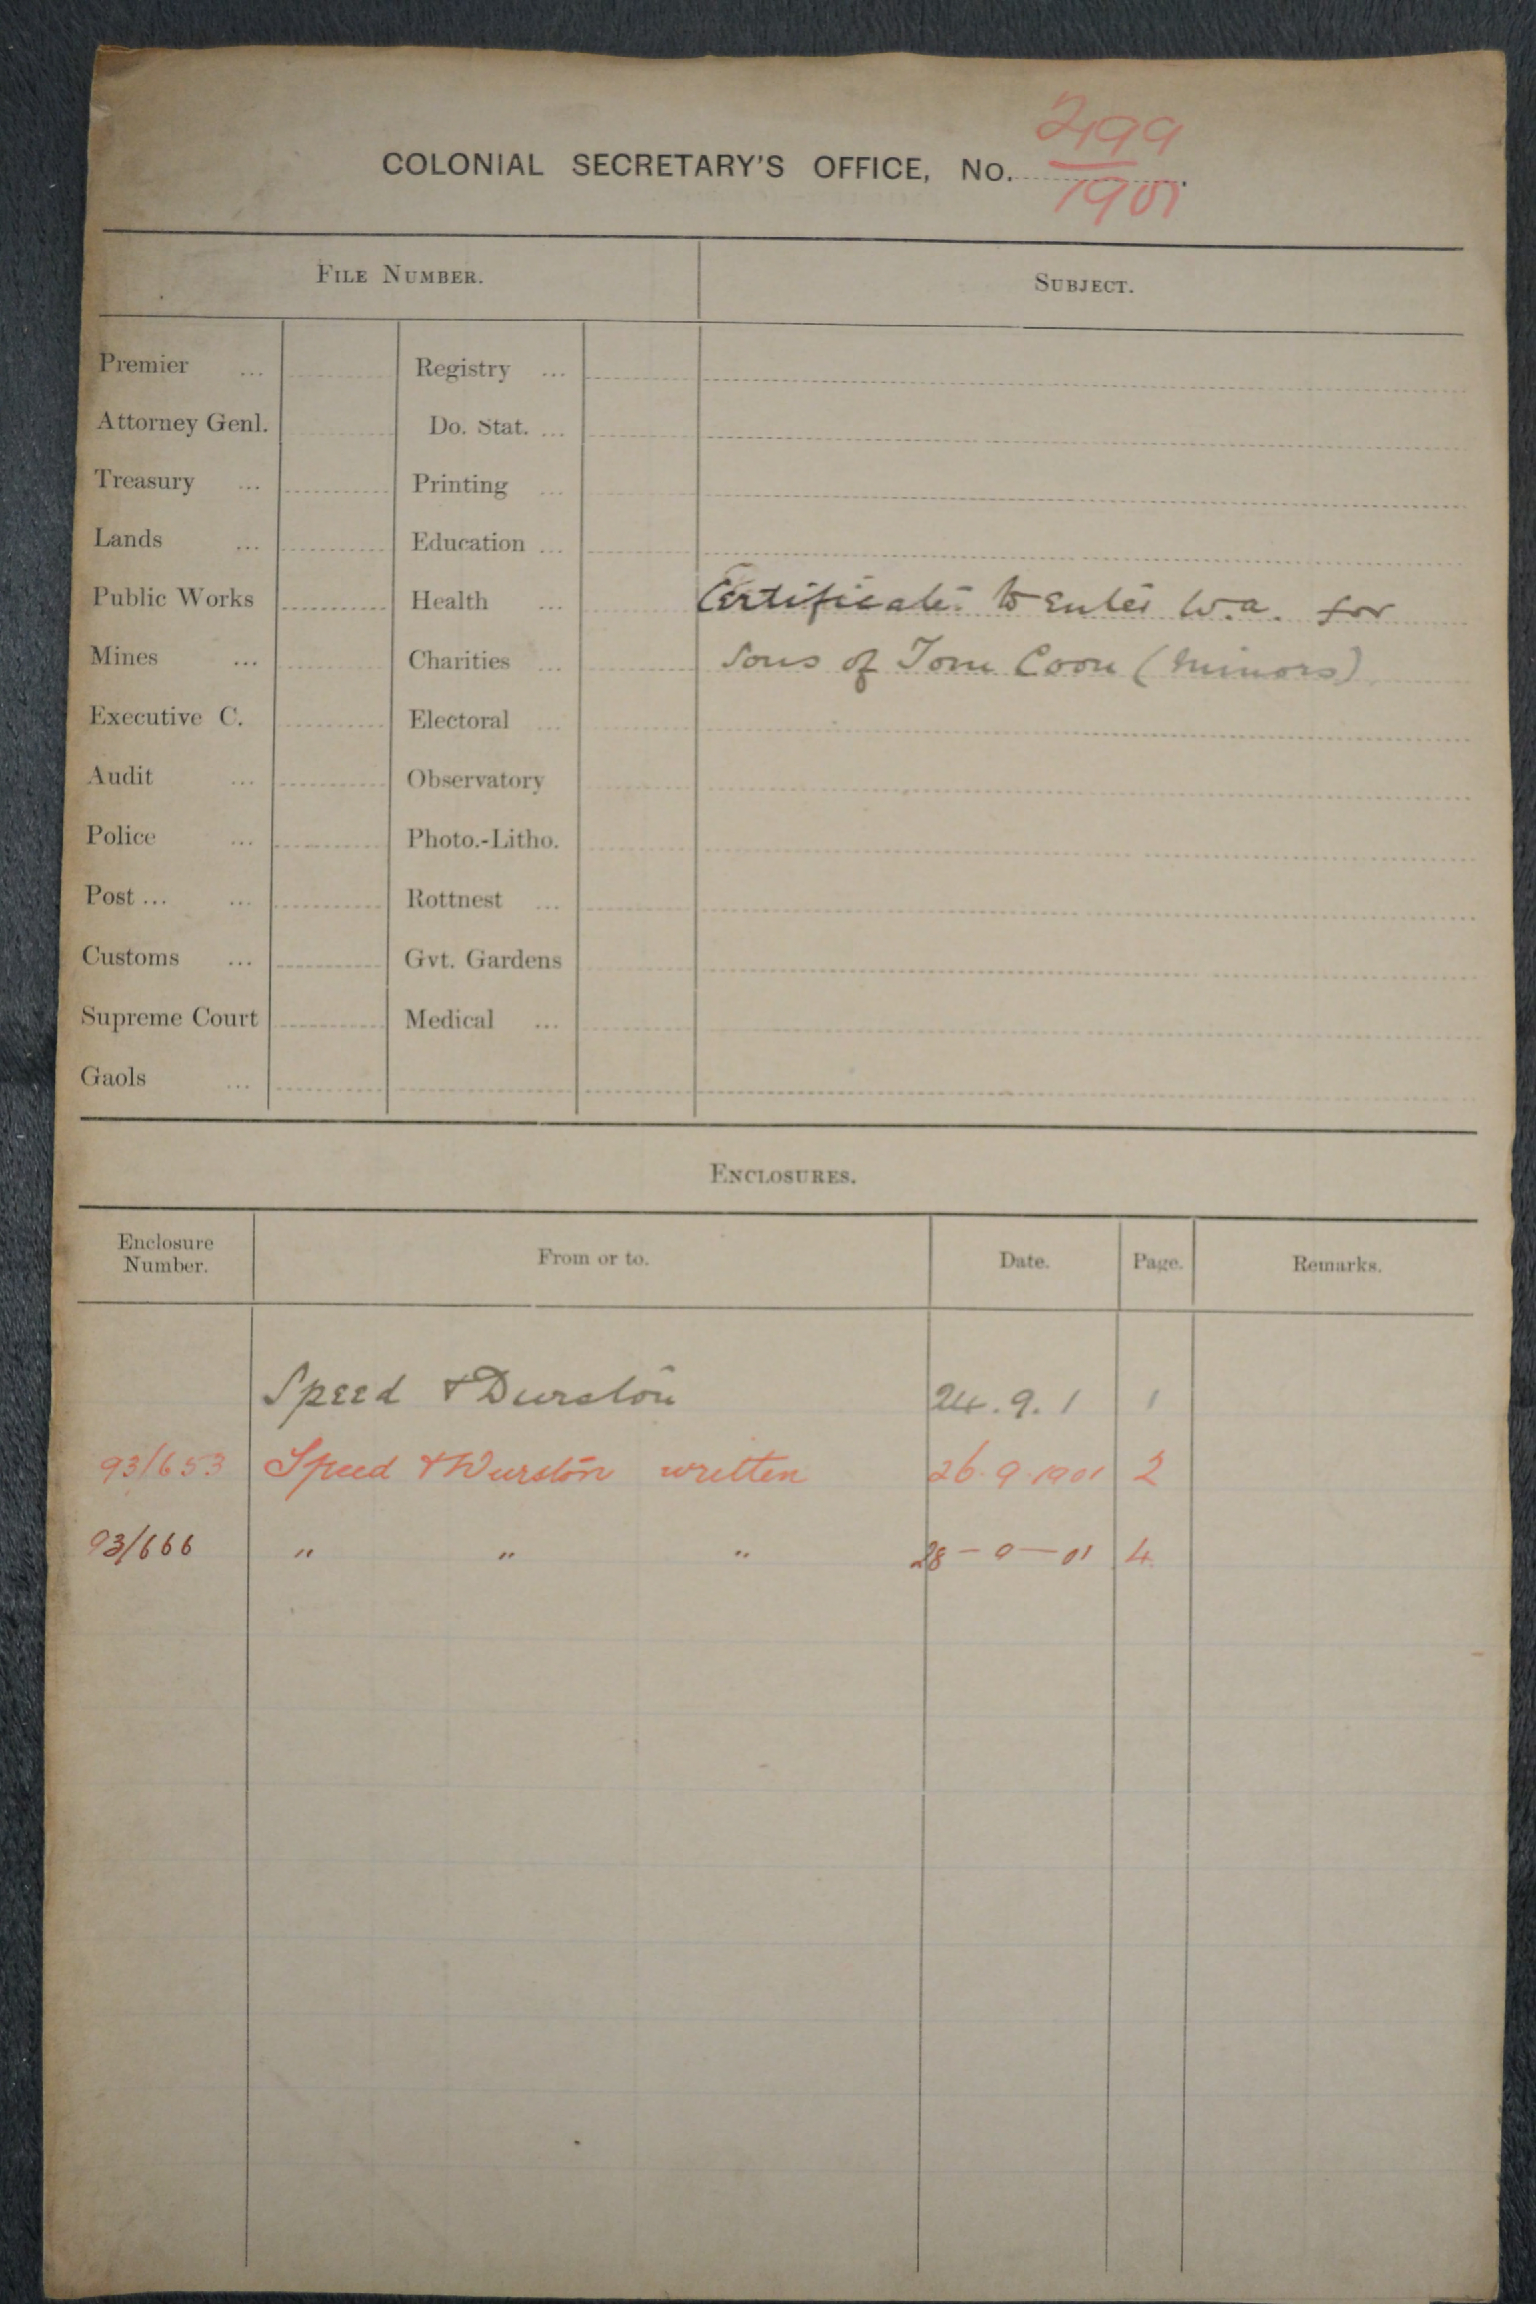 2199
COLONIAL SECRETARY'S OFFICE, No. 1901
FILE NUMBER. SUBJECT.
Premier ... Registry ...
Attorney Genl. Do. Stat. ...
Treasury ... Printing ...
Lands ... Education ...
Public Works Health ... Certificates to enter W.A. for
Mines ... Charities ... Sons of Tom Coon (Minors)
Executive C. Electoral ...
Audit ... Observatory
Police ... Photo.-Litho.
Post ... ... Rottnest ...
Customs ... Gvt. Gardens
Supreme Court Medical ...
Gaols ...
ENCLOSURES.
Enclosure Number. From or to. Date. Page. Remarks.
Speed & Durston 24.9.1 1
93/653 Speed & Durston written 26.9.1901 2
93/666 " " " 28-9-01 4